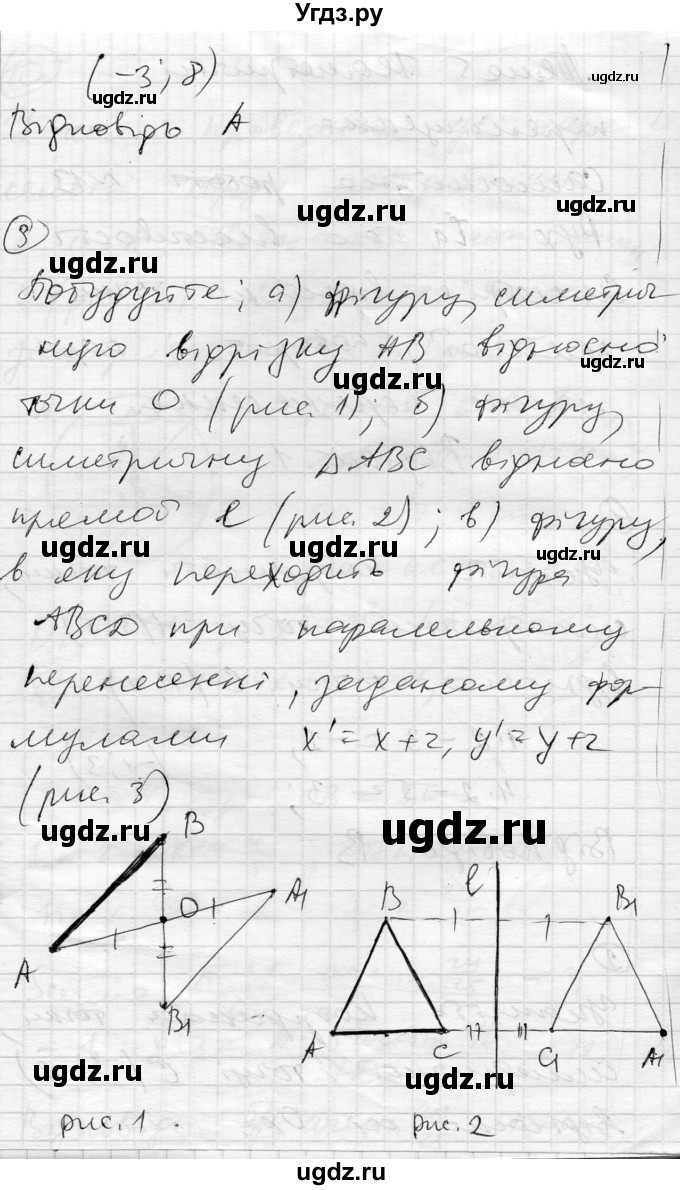 Угдз.ру
(-3; 8)
ugdz.ru
ugdz.ru
Відповідь А
ugdz.ru
③
ugdz.ru
Побудуйте; а) фігуру, симетрич-
ную відрізку АВ відносно
ugdz.ru
ugdz.ru
точки О (рис. 1); б) фігуру,
симетричну △ АВС відносно
прямой ℓ (рис. 2); в) фігуру,
ugdz.ru
ugdz.ru
в яку переходить фігура
ABCD при паралельному
перенесенні, заданому фор-
мулами x'=x+2, y'=y+2
(рис. 3)
ugdz.ru
ugdz.ru
B
O
A1
A
B1
B
ℓ
B1
A
C
C1
A1
ugdz.ru
ugdz.ru
рис. 1.
рис. 2
ugdz.ru